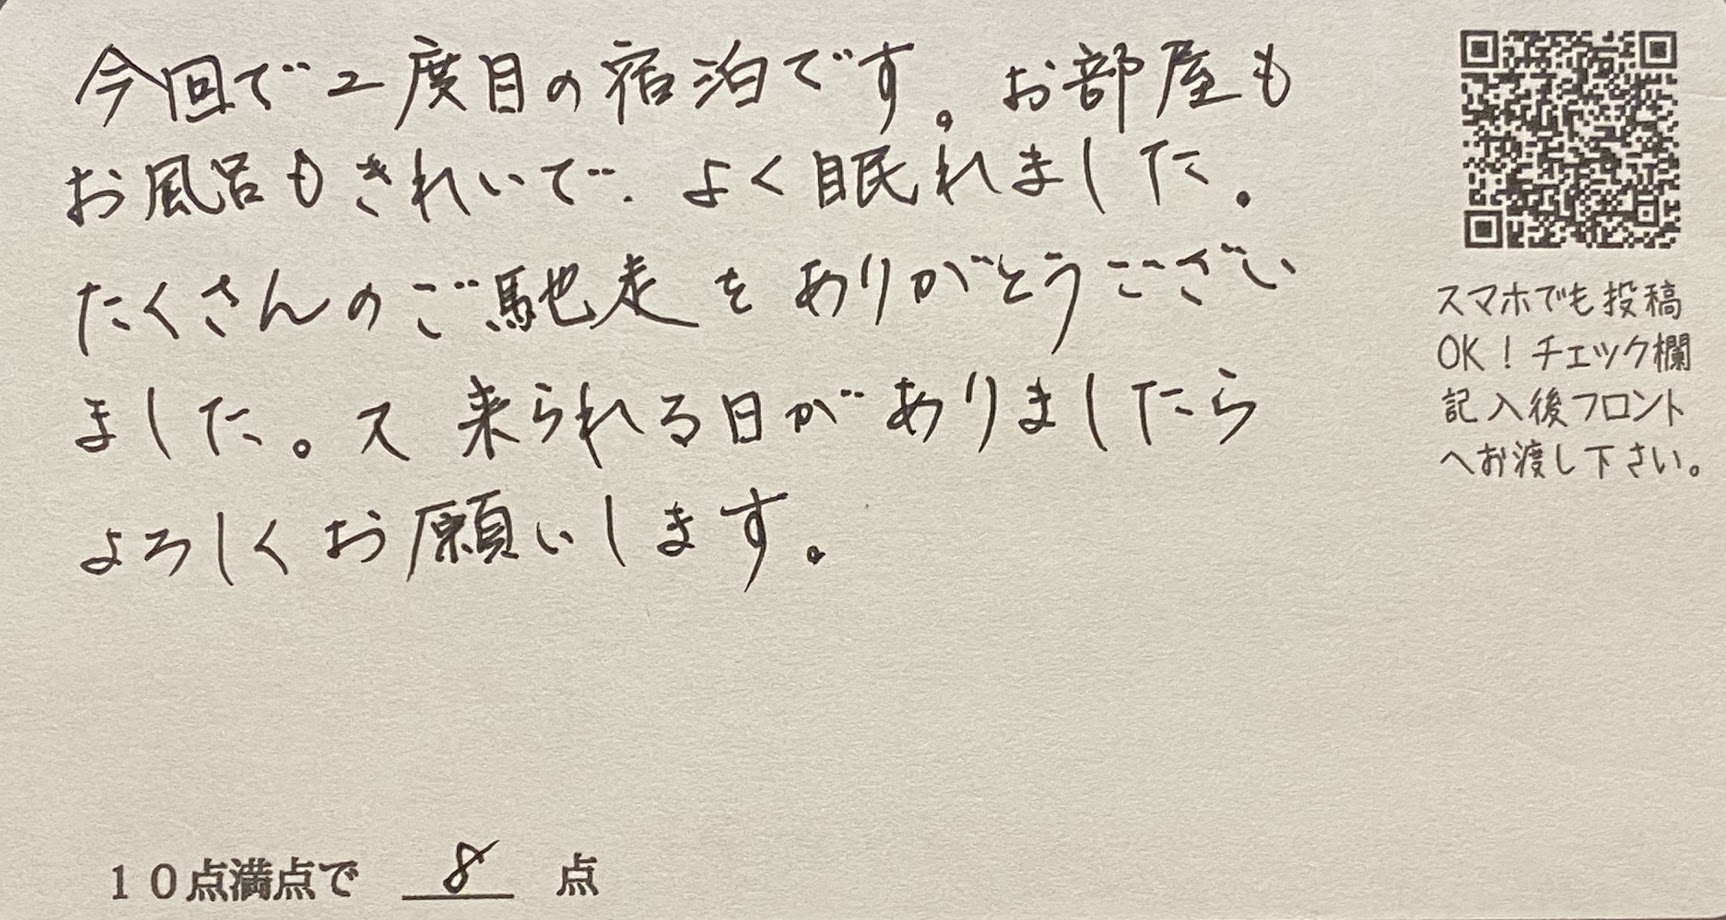 今回で2度目の宿泊です。お部屋も
お風呂もきれいで、よく眠れました。
たくさんのご馳走をありがとうござい
ました。又来られる日がありましたら
よろしくお願いします。
スマホでも投稿
OK！チェック欄
記入後フロント
へお渡し下さい。
10点満点で 8 点